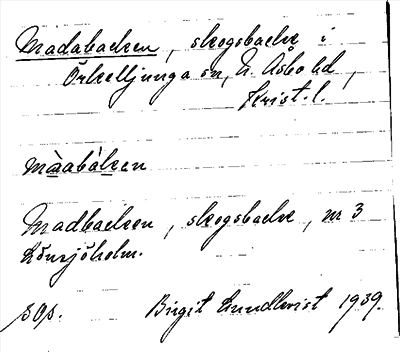 Madabacken, skogsbacke i
Örkelljunga sn, N. Åsbo hd,
Krist. l.
màabáken
Madbacken, skogsbacke, nr 3
Lönsjöholm.
sOp. Birgit Lundkvist 1939.